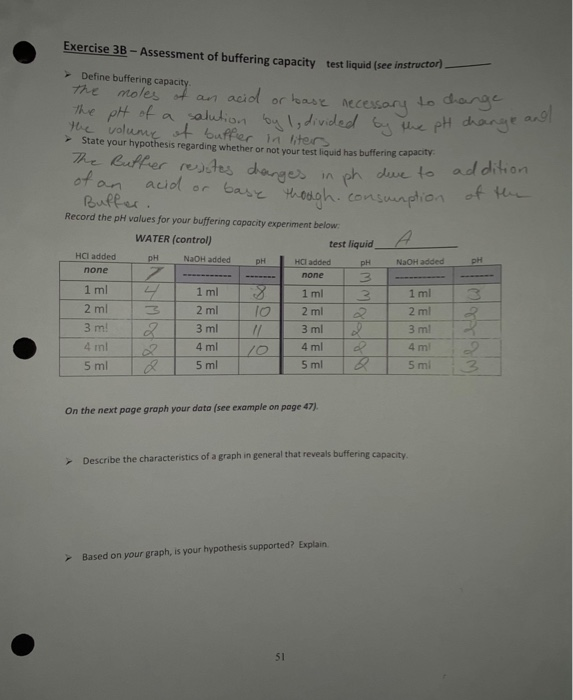 Exercise 3B – Assessment of buffering capacity test liquid (see instructor) ________
➤ Define buffering capacity.
the moles of an acid or base necessary to change
the pH of a salution by 1, divided by the pH change and
the volume of buffer in liters
➤ State your hypothesis regarding whether or not your test liquid has buffering capacity:
The Buffer resistes changes in ph due to addition
of an acid or base though. consumption of the
Buffer.
Record the pH values for your buffering capacity experiment below:
WATER (control) test liquid A
HCl added pH NaOH added pH HCl added pH NaOH added pH
none 7 ----------- ------- none 3 ----------- -------
1 ml 4 1 ml 8 1 ml 3 1 ml 3
2 ml 3 2 ml 10 2 ml 2 2 ml 2
3 ml 2 3 ml 11 3 ml 2 3 ml 2
4 ml 2 4 ml 10 4 ml 2 4 ml 2
5 ml 2 5 ml 5 ml 2 5 ml 3
On the next page graph your data (see example on page 47).
➤ Describe the characteristics of a graph in general that reveals buffering capacity.
➤ Based on your graph, is your hypothesis supported? Explain.
51